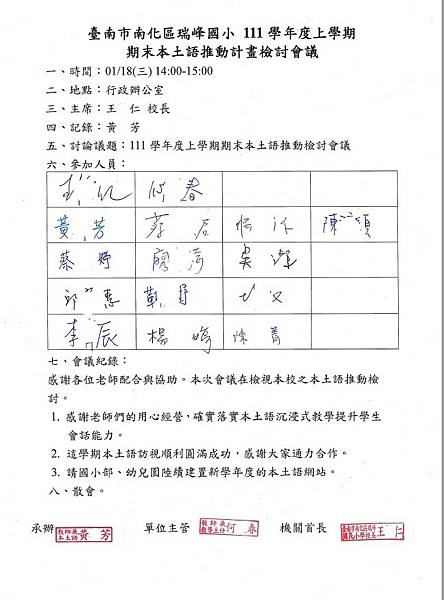 臺南市南化區瑞峰國小 111 學年度上學期
期末本土語推動計畫檢討會議
一、時間：01/18(三) 14:00-15:00
二、地點：行政辦公室
三、主席：王 仁 校長
四、記錄：黃 芳
五、討論議題：111 學年度上學期期末本土語推動檢討會議
六、參加人員：
春
黃 芳 君 陳 頌
蔡 婷 廖
邱 惠
李 辰 楊 陳 菁
七、會議紀錄：
感謝各位老師配合與協助。本次會議在檢視本校之本土語推動檢
討。
1. 感謝老師們的用心經營，確實落實本土語沉浸式教學提升學生
會話能力。
2. 這學期本土語訪視順利圓滿成功，感謝大家通力合作。
3. 請國小部、幼兒園陸續建置新學年度的本土語網站。
八、散會。
承辦 教師兼本土語 黃 芳 單位主管 教師兼教導主任 何 春 機關首長 臺南市南化區瑞峰國民小學校長 王 仁